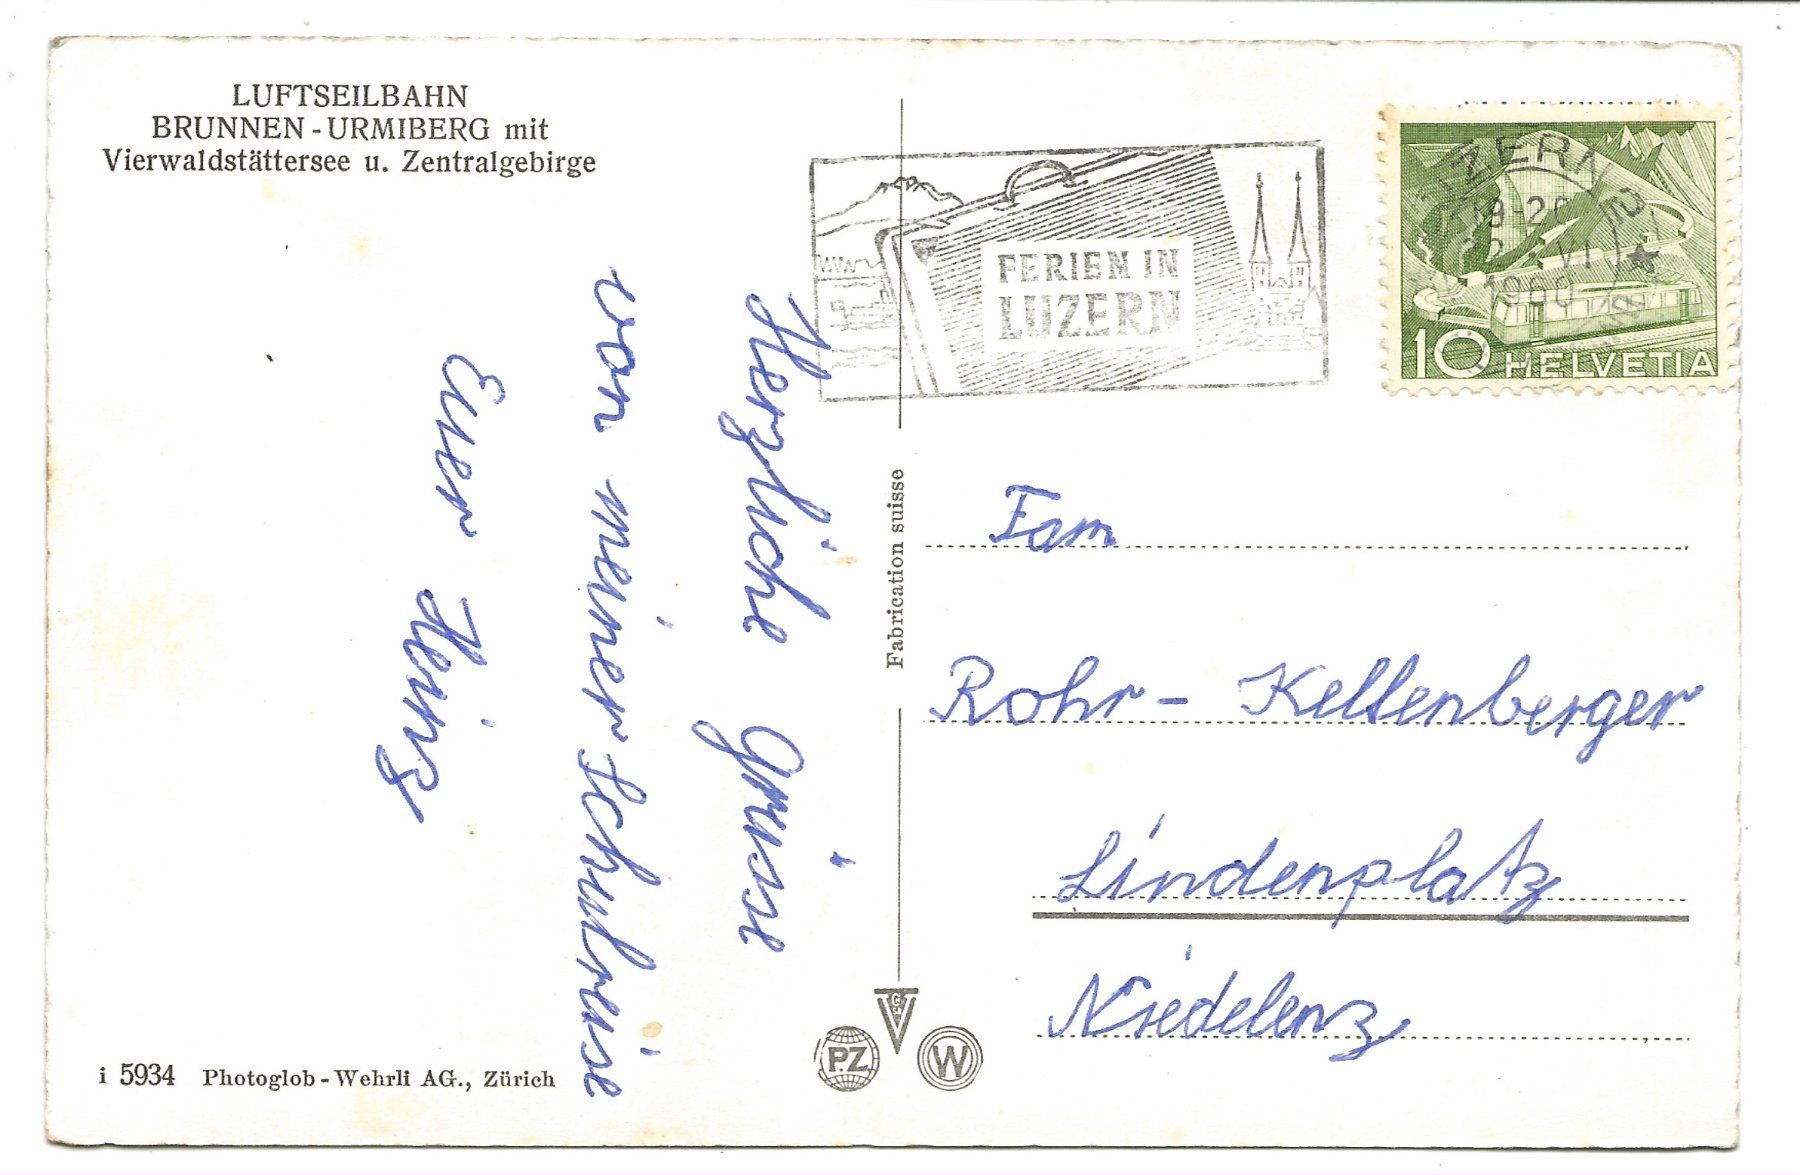 LUFTSEILBAHN
BRUNNEN - URMIBERG mit
Vierwaldstättersee u. Zentralgebirge
Herzliche Grüsse
von meiner Schulreise
Euer Heinz
i 5934 Photoglob - Wehrli AG., Zürich
Fabrication suisse
PZ
W
FERIEN IN
LUZERN
LUZERN 2
1960
10 HELVETIA
Fam
Rohr - Kellenberger
Lindenplatz
Niedelenz